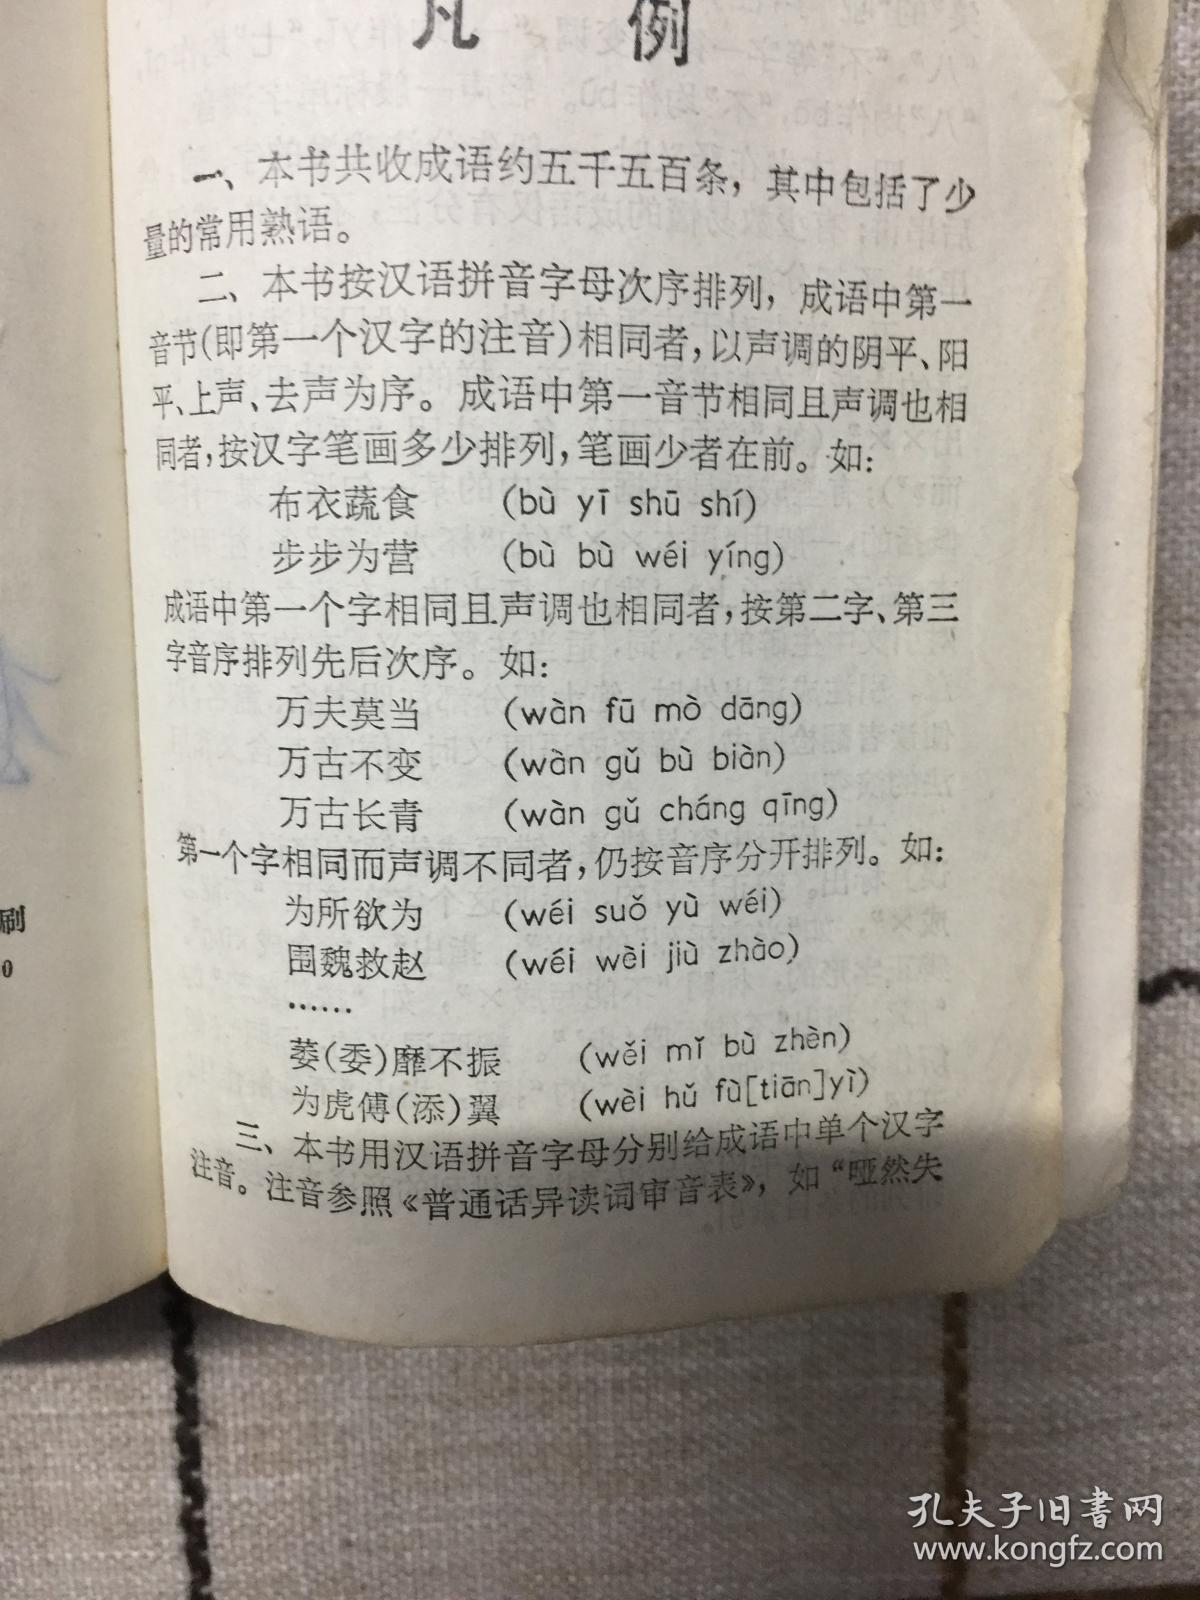 凡 例
一、本书共收成语约五千五百条，其中包括了少
量的常用熟语。
二、本书按汉语拼音字母次序排列，成语中第一
音节(即第一个汉字的注音)相同者，以声调的阴平、阳
平、上声、去声为序。成语中第一音节相同且声调也相
同者，按汉字笔画多少排列，笔画少者在前。如：
布衣蔬食 (bù yī shū shí)
步步为营 (bù bù wéi yíng)
成语中第一个字相同且声调也相同者，按第二字、第三
字音序排列先后次序。如：
万夫莫当 (wàn fū mò dāng)
万古不变 (wàn gǔ bù biàn)
万古长青 (wàn gǔ cháng qīng)
第一个字相同而声调不同者，仍按音序分开排列。如：
为所欲为 (wéi suǒ yù wéi)
围魏救赵 (wéi wèi jiù zhào)
……
萎(委)靡不振 (wěi mǐ bù zhèn)
为虎傅(添)翼 (wèi hǔ fù[tiān]yì)
三、本书用汉语拼音字母分别给成语中单个汉字
注音。注音参照《普通话异读词审音表》，如“哑然失
刷
0
孔夫子旧书网
www.kongfz.com